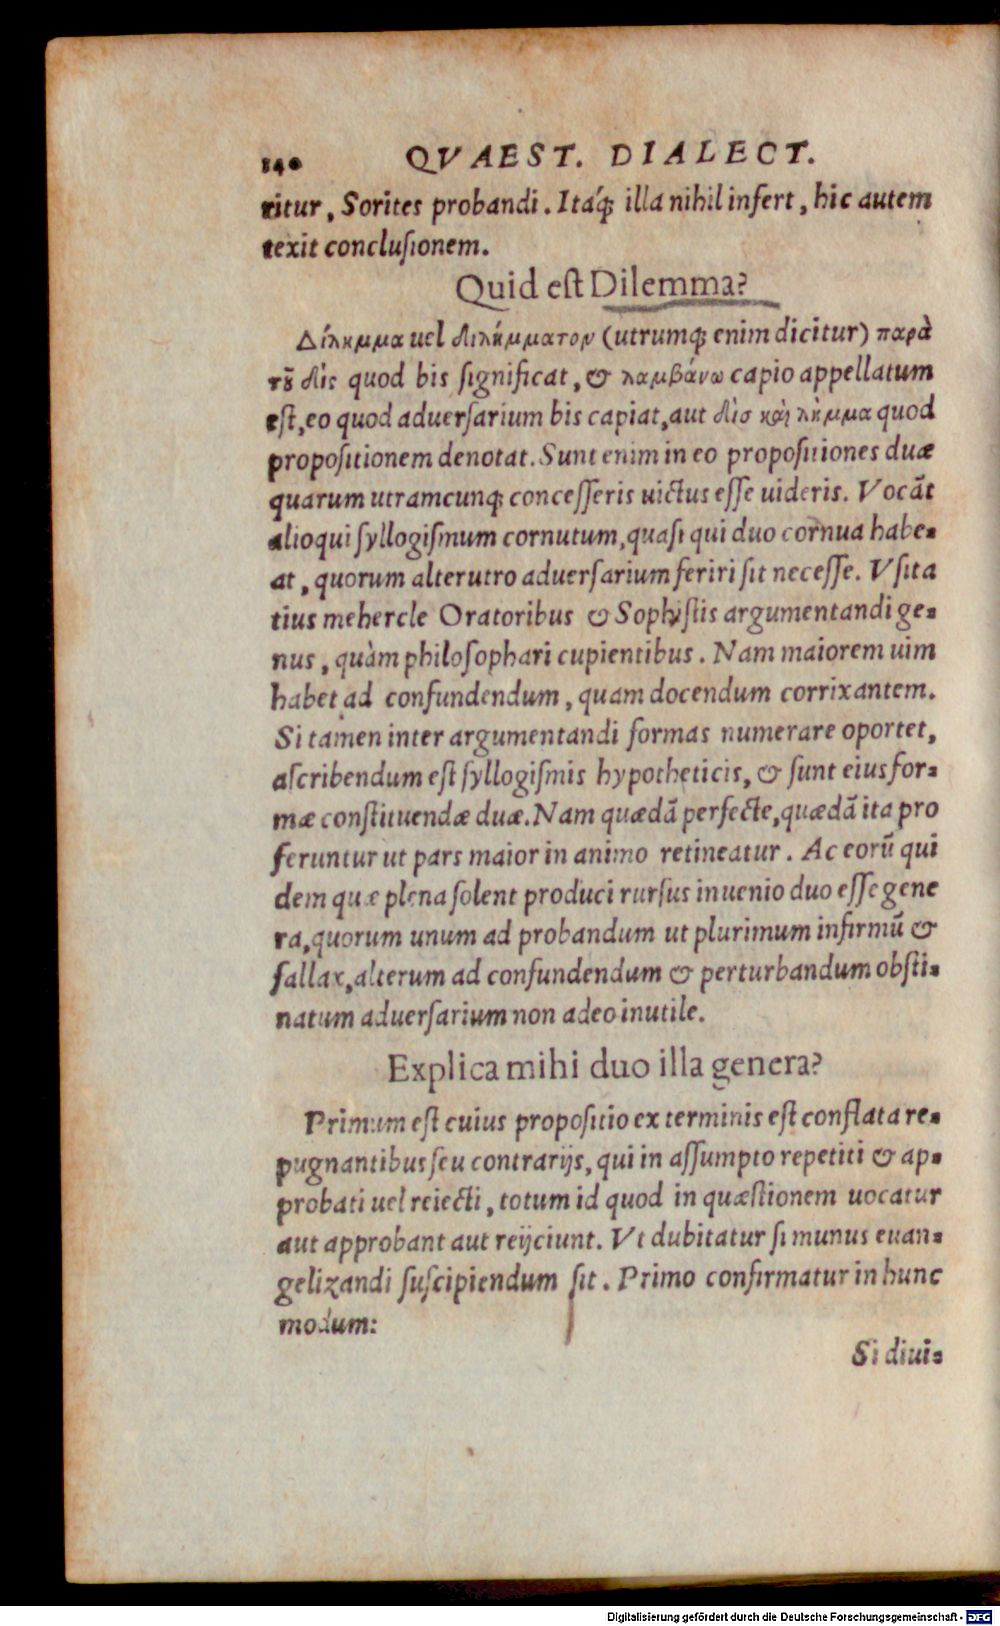 140 QVAEST. DIALECT.
ritur, Sorites probandi. Itáq; illa nihil infert, hic autem
texit conclusionem.
Quid est Dilemma?
Δίλημμα uel διλήμματον (utrumq; enim dicitur) παρὰ
τȣ͂ δὶς quod bis significat, & λαμβάνω capio appellatum
est, eo quod aduersarium bis capiat, aut δὶσ καὶ λῆμμα quod
propositionem denotat. Sunt enim in eo propositiones duæ
quarum utramcunq; concesseris uictus esse uideris. Vocãt
alioqui syllogismum cornutum, quasi qui duo cornua habe-
at, quorum alterutro aduersarium feriri sit necesse. Vsita
tius mehercle Oratoribus & Sophistis argumentandi ge-
nus, quàm philosophari cupientibus. Nam maiorem uim
habet ad confundendum, quam docendum corrixantem.
Si tamen inter argumentandi formas numerare oportet,
ascribendum est syllogismis hypotheticis, & sunt eius for-
mæ constituendæ duæ. Nam quædã perfecte, quædã ita pro
feruntur ut pars maior in animo retineatur. Ac eorũ qui
dem quæ plena solent produci rursus inuenio duo esse gene
ra, quorum unum ad probandum ut plurimum infirmũ &
fallax, alterum ad confundendum & perturbandum obsti-
natum aduersarium non adeo inutile.
Explica mihi duo illa genera?
Primum est cuius propositio ex terminis est conflata re-
pugnantibus seu contrarijs, qui in assumpto repetiti & ap-
probati uel reiecti, totum id quod in quæstionem uocatur
aut approbant aut reijciunt. Vt dubitatur si munus euan-
gelizandi suscipiendum sit. Primo confirmatur in hunc
modum:
Si diui-
Digitalisierung gefördert durch die Deutsche Forschungsgemeinschaft - DFG